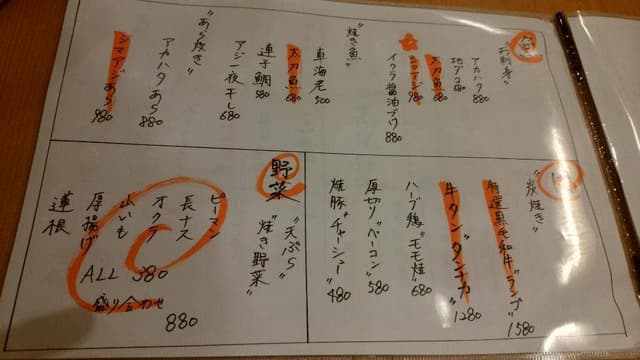 魚
"お刺身"
アカハタ 880
地ダコ 680
太刀魚 680
シマアジ 980
イクラ醤油づけ 880
"焼き魚"
車海老 500
太刀魚 680
連子鯛 580
アジ一夜干し 680
"あら炊き"
アカハタあら 880
シマアジあら 980
肉
"炭焼き"
特選黒毛和牛"ランプ" 1580
牛タン"タンテカ" 1280
ハーブ鶏"モモ焼" 680
厚切り"ベーコン" 580
焼豚"チャーシュー" 480
野菜
"天ぷら"
"焼き野菜"
ピーマン
長ナス
オクラ
山いも
厚揚げ
蓮根
ALL 380
盛り合わせ
880